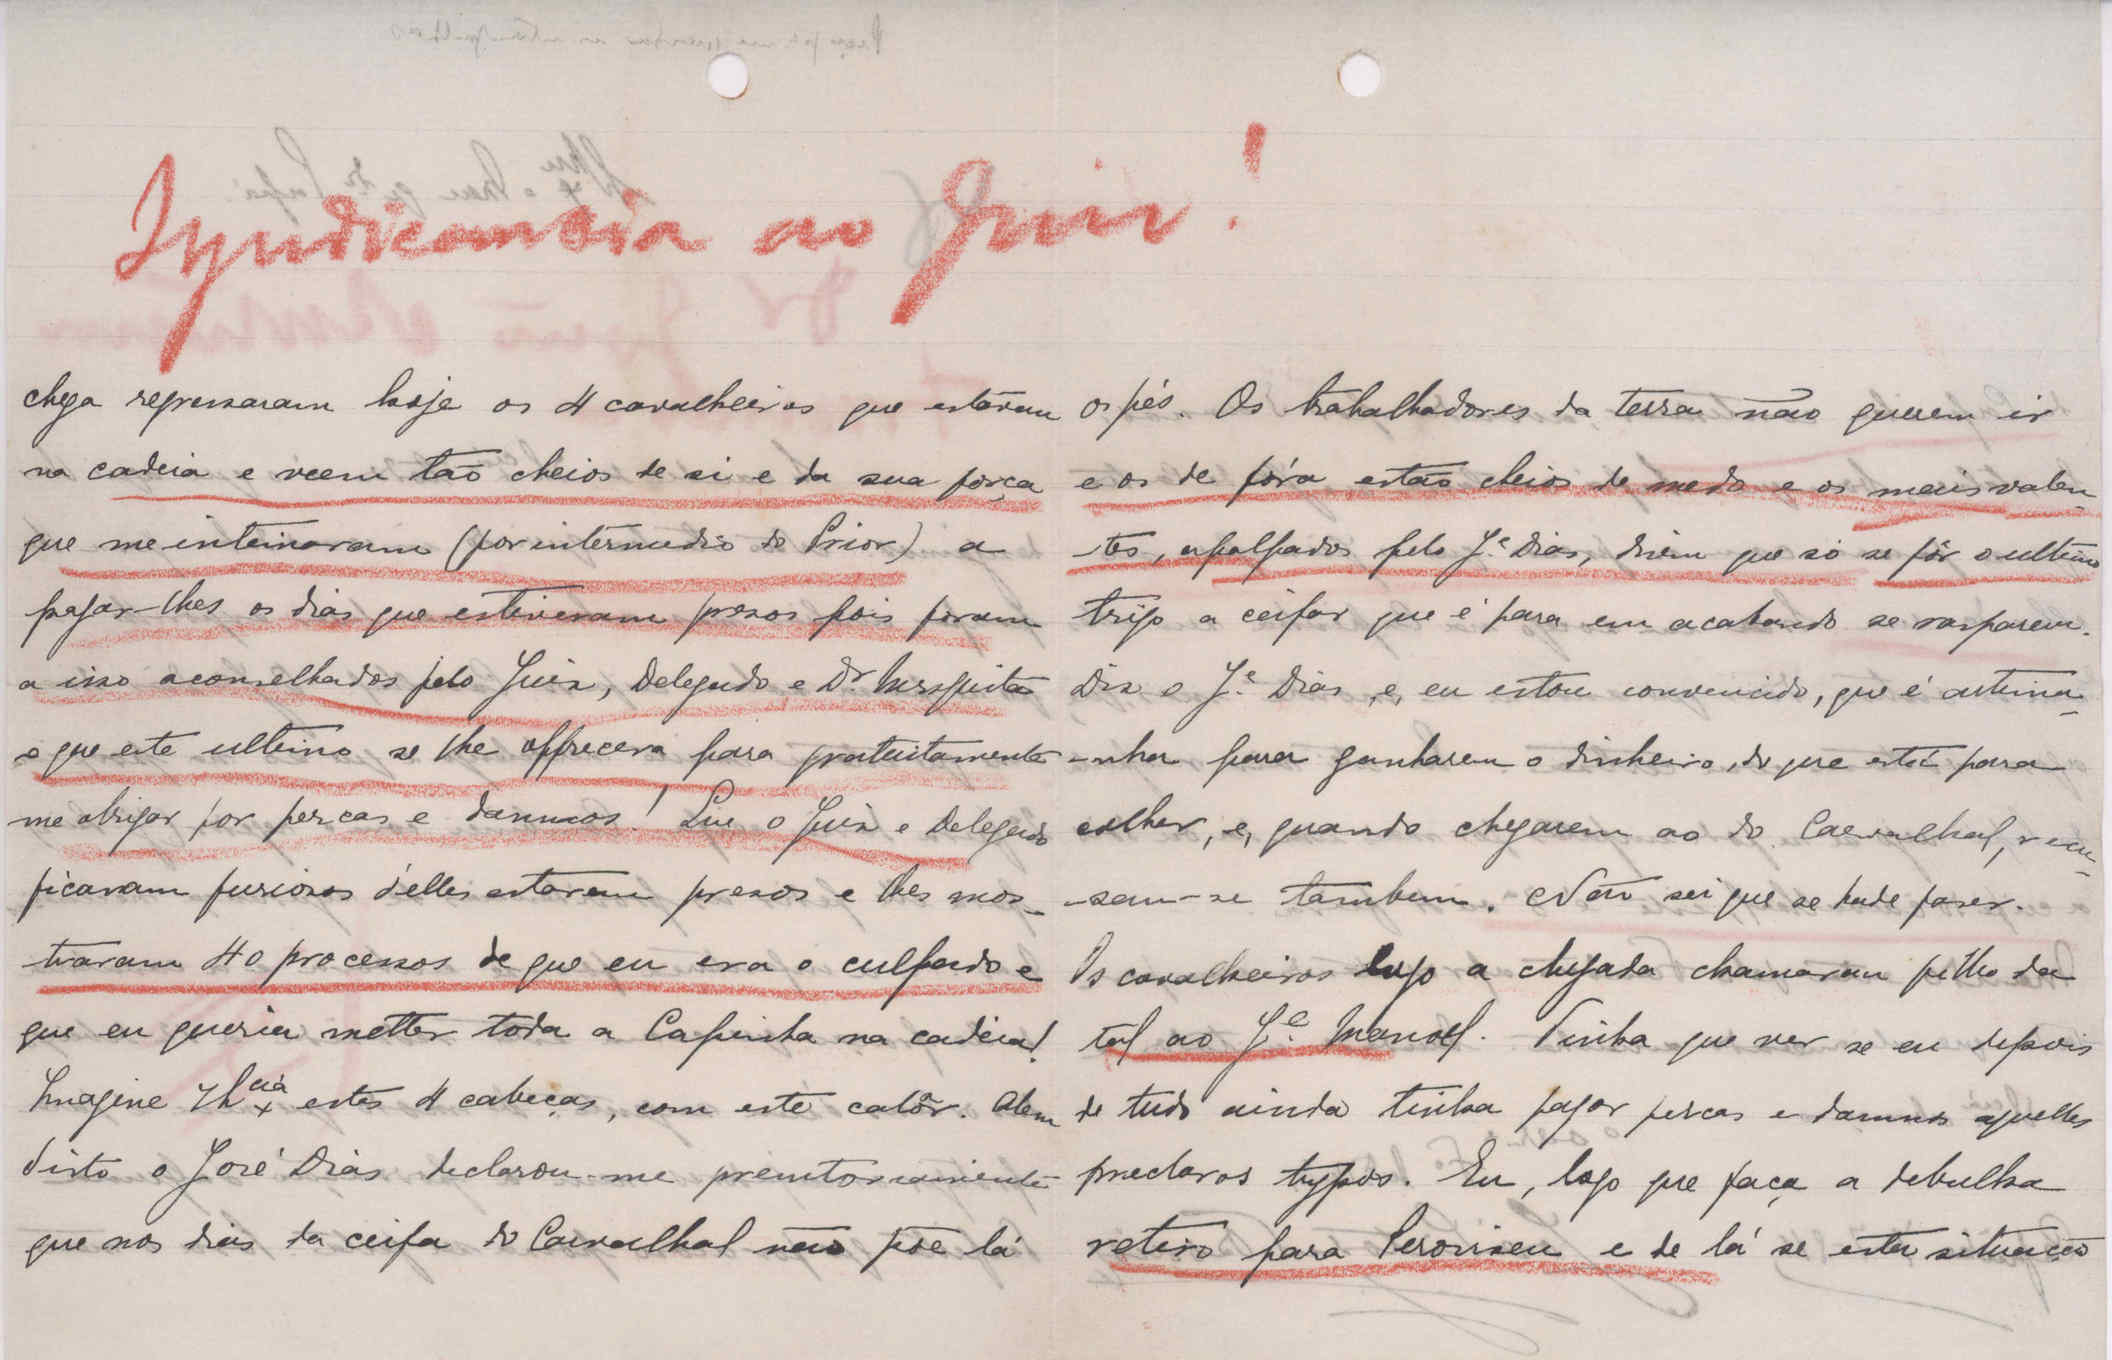 Syndicancia ao Juiz!
chega regressaram hoje os 4 cavalheiros que estavam
na cadeia e veem tão cheios de si e da sua força
que me intimaram (por intermedio do Prior) a
pagar-lhes os dias que estiveram presos pois foram
a isso aconselhados pelo Juiz, Delegado e Dr.
o que este ultimo se lhe offrecera para gratuitamente
me obrigar por percas e damnos! Que o Juiz e Delegado
ficaram furiosos d'elles estarem presos e lhes mos-
traram 40 processos de que eu era o culpado e
que eu queria metter toda a Capinha na cadeia!
Imagine estas 4 cabeças, com este calôr. Alem
disto o José Dias declarou-me
que nos dias da ceifa do Carvalhal não põe lá
os pés. Os trabalhadores da terra não querem ir
e os de fóra estão cheios de medo e os mais valen-
-tes, apalpados pelo J.e Dias, dizem que só se fôr o ultimo
trigo a ceifar que é para em acabando se rasparem.
Diz o J.e Dias, e, eu estou convencido, que é artima-
-nha para ganharem o dinheiro, do que está para
colher, e, quando chegarem ao do Carvalhal, recu-
-sam-se tambem. Não sei que se pode fazer.
Os cavalheiros logo a chegada chamaram filho da
tal ao J.e Manoel. Tinha que ver se eu depois
de tudo ainda tinha pagar percas e damnos aquelles
preclaros typos. Eu, logo que faça a debulha
retiro para Peroviseu e de lá se esta situação